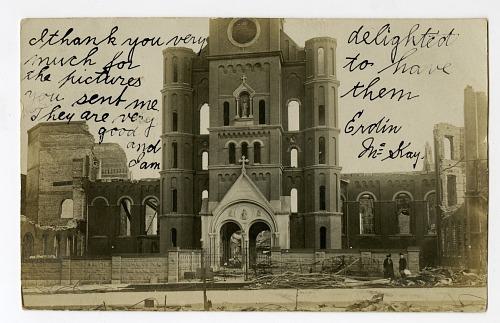 I thank you very
much for
the pictures
you sent me
They are very
good
and
I am
delighted
to have
them
Erdin
McKay.